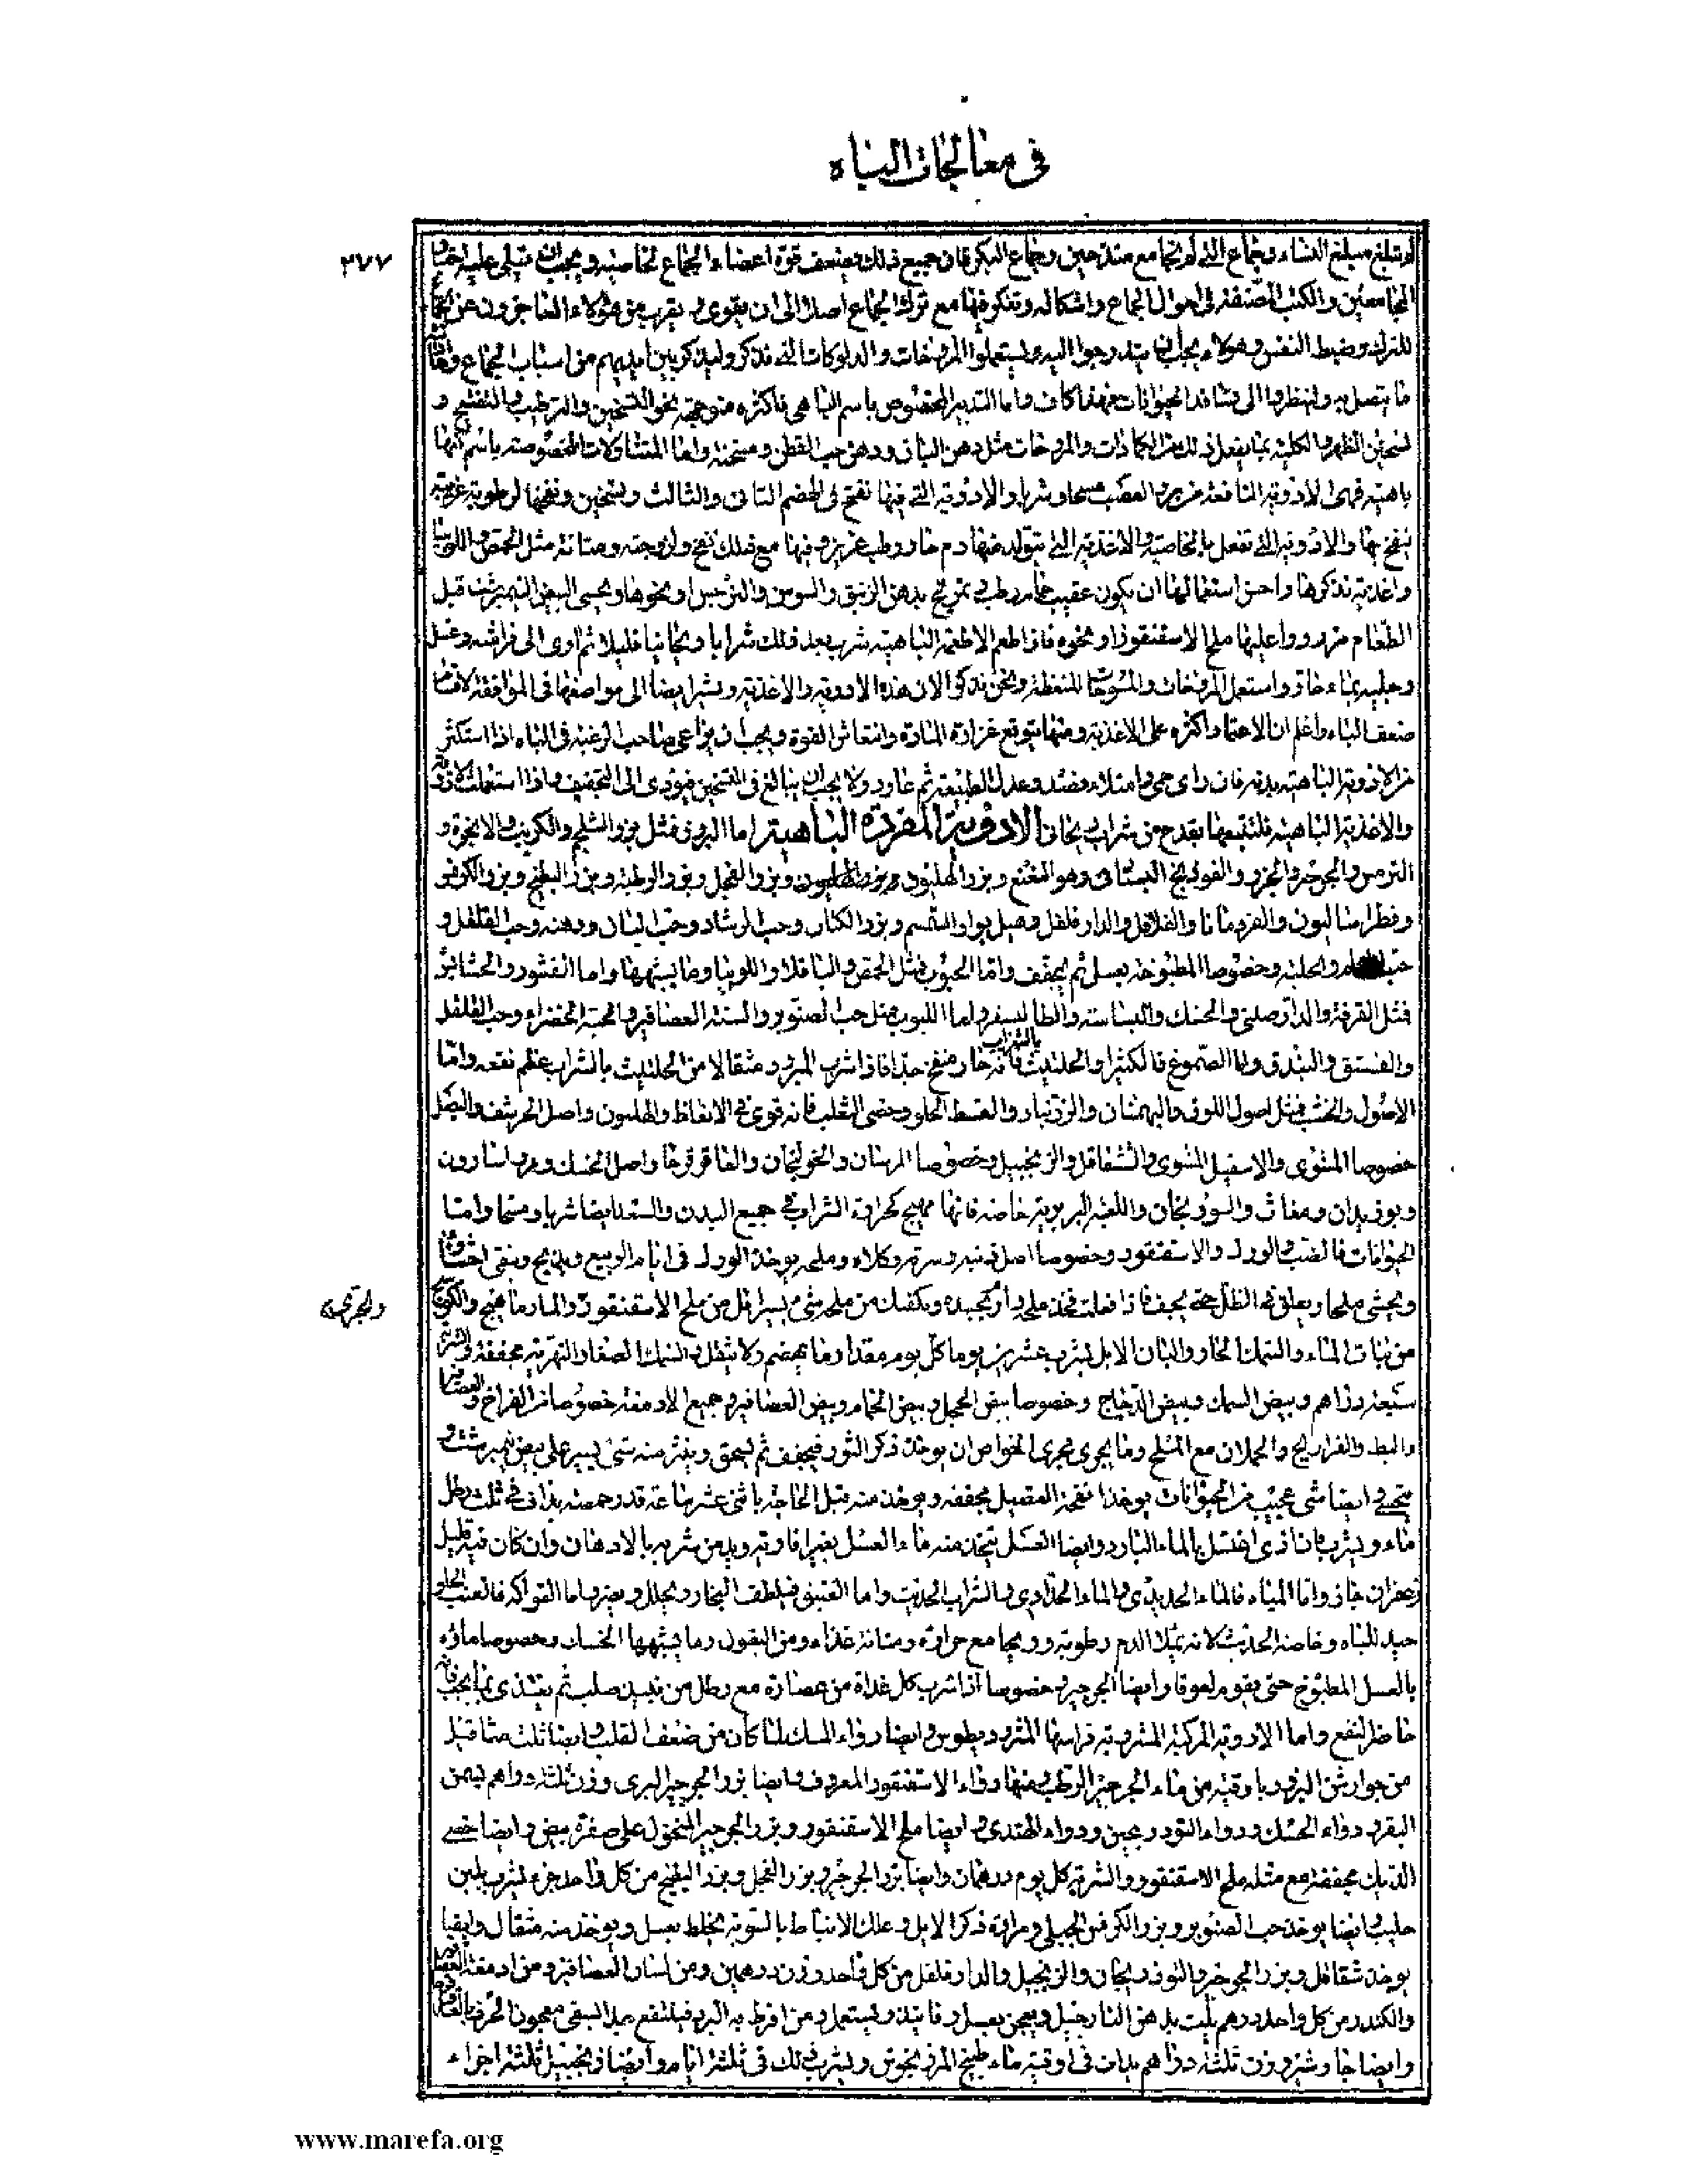 في معالجات الباه
٢٧٧
لم تبلغ مبلغ النساء وجماع التي لم تجامع منذ حين وجماع البكر فان جميع ذلك يضعف قوة اعضاء الجماع لخاصية ويجب ان تتلى عليه اخبار
المجامعين والكتب المصنفة في احوال الجماع واشكاله وتفكر فيها مع ترك الجماع اصلا الى ان يقوى ويقرب من هؤلاء العاجزون عن
للترك وضبط النفس وهؤلاء يجب ان يتدرجوا اليه ويستعملوا المروخات والدلوكات التي نذكر وليذكر بين ايديهم من اسباب الجماع
ما يتصل به ولينظروا الى تسافد الحيوانات فهذا كاف واما التدبير المخصوص باسم الباهي فاكثره متوجهة نحو التسخين والترطيب والتفتيح و
تسخين الظهر والكلية بما يفعل ذلك من الكمادات والمروخات مثل دهن البان ودهن حب القطن ومسخنة واما المتناولات المخصوصة باسم انها
باهية فهي الادوية النافعة من برد العصب مسحا وشربا والادوية التي فيها نفخ في الهضم الثاني والثالث وتسخين ونفخها لرطوبة غريبة
تنفخ بها والادوية التي تفعل بالخاصية والاغذية التي يتولد منها دم حار رطب غزير وفيها مع ذلك نفخ ولزوجة ومتانة مثل الحمص واللوبيا
واغذية نذكرها واحسن استعمالها ان يكون عقيب حمام رطب تمريخ بدهن الزنبق والسوسن والنرجس او نحوها ويحسى البيض النيمبرشت قبل
الطعام مذرورا عليها ملح الاسقنقور او نحوه فاذا طعم الاطعمة الباهية شرب بعد ذلك شرابا ريحانيا قليلا ثم اوى الى فراشه وغسل
رجليه بماء حار واستعمل المروخات والمسوحات المنعظة ونحن نذكر الان هذه الادوية والاغذية ونشير ايضا الى مواضعها في الموافقة لاقسام
ضعف الباه واعلم ان الاعتماد اكثره على الاغذية ومنها يتوقع غزارة المادة وانتعاش القوة ويجب ان يراعي صاحب الرغبة في الباه اذا استكثر
من الادوية الباهية بدنه فان راى حمى او امتلاء فصد وعدل الطبيعة ثم عاود ولا يجب ان يبالغ في التسخين فيؤدى الى التجفيف واذا استعملت الادوية
والاغذية الباهية فلتتبعها بقدح من شراب ريحاني الادوية المفردة الباهية اما البزور فمثل بزر الشلجم والكرنب والانجرة و
الترمس والجرجير والجزر والفودنج البستاني وهو النعنع وبزر الهليون وبزر الفجل وبزر الرطبة وبزر البطيخ وبزر الكرفس
وفطراساليون والقردمانا والفلافل والدارفلفل وهيل بوا والسمسم وبزر الكتان وحب الرشاد وحب البان ودهنه وحب الفلفل و
والحلبة وخصوصا المطبوخة بعسل ثم يجفف واما الحبوب فمثل الحمص والباقلا واللوبيا وما يشبهها واما القشور والحشائش
فمثل القرفة والدارصيني والحسك والبسباسة والطاليسفر واما اللبوب مثل حب الصنوبر والسنة العصافير والحبة الخضراء وحب الفلفل
والفستق والبندق واما الصموغ فالكثيرا والحلتيت فانه حار منفخ جدا فاذا شرب المبرود مثقالا من الحلتيت بالشراب عظم نفعه واما
الاصول والخشب فمثل اصول اللوف والبهمنان والزرنباد والقسط الحلو وخصى الثعلب فانه قوى في الانعاظ والهليون واصل الحرشف والبصل
خصوصا المشوى والاسقيل المشوى والشقاقل والزنجبيل وخصوصا المربيان والخولنجان والعاقرقرحا واصل الحسك ومو واسارون
وبوزيدان ومغاث والسورنجان واللعبة البربرية خاصة فانها مهيج لحرارة الشراب في جميع البدن والسعد ايضا شربا ومسحا واما
الحيوانات فالضب والورل والاسقنقور وخصوصا اصل ذنبه وسرته وكلاه وملحه يوخذ الورل في ايام الربيع ويذبح وينقى احشاؤه
ويحشى ملحا ويعلق في الظل حتى يجف فاذا فعلت فخذ ملحه وارم بجسده ويكفيك من ملحه شئ يسير اقل من ملح الاسقنقور والمارماهيج
والجرى
من نبات الماء والسمك الحار والبان الابل يشرب عشرين يوما كل يوم مقدار ما يهضم ولا يثقل والسمك الصغار النهرية مجففة والشربة
سبعة دراهم وبيض السمك وبيض الدجاج وخصوصا بيض الحجل وبيض الحمام وبيض العصافير وجميع الادمغة خصوصا من الفراخ والعصافير
والبط والفراريج والحملان مع الملح وما يجرى مجرى الخواص ان يوخذ ذكر الثور فيجفف ثم يسحق وينثر منه شئ يسير على بيض نيمبرشت و
يتحسى وايضا شئ عجيب من الحيوانات يوخذ انفحة الفصيل مجففة ويوخذ منه قبل الحاجة باثنى عشر ساعة قدر حمصة يذاف في ثلث رطل
ماء ويشرب فان اذى اغتسل بالماء البارد وايضا العسل يتخذ منه ماء العسل بغير افاوية ويدمن شربه بالادهان وان كان فيه قليل
زعفران جاز واما المياه فالماء الحديدى والماء الحدادى والشراب الحديث واما العتيق فيلطف البخار ويحلل ويضر واما الفواكه فالعنب الحلو
جيد للباه وخاصة الحديث لانه يملا الدم رطوبة وريحا مع حرارة ومتانة غذاء ومن البقول وما يشبهها الحسك وخصوصا ماؤه
بالعسل المطبوخ حتى يقوم لعوقا وايضا الجرجير وخصوصا اذا شرب كل غداة من عصارة مع رطل من نبيذ صلب ثم يغتذى بما يجب فانه
حاضر النفع واما الادوية المركبة المشروبة فراسها المثروديطوس وايضا دواء المسك لما كان من ضعف القلب وايضا ثلث مثاقيل
من جوارشن البزور باوقية من ماء الجرجير الرطب ومنها دواء الاسقنقور المعروف وايضا بزر الجرجير البرى وزن ثلثة دراهم بسمن
البقر ودواء الحسك ودواء التودريجين ودواء الهندى وايضا ملح الاسقنقور وبزر الجرجير المنخول على صفرة بيض وايضا خصى
الديك مجففة مع مثله ملح الاسقنقور والشربة كل يوم درهمان وايضا بزر الجرجير وبزر الفجل وبزر البطيخ من كل واحد جزء يشرب بلبن
حليب وايضا يوخذ حب الصنوبر وبزر الكرفس الجبلي ومرارة ذكر الايل وعلك الانباط بالسوية يخلط بعسل ويوخذ منه مثقال وايضا
يوخذ شقاقل وبزر الجرجير والتوذريجان والزنجبيل والدارفلفل من كل واحد وزن درهمين ومن لسان العصافير ومن ادمغة العصافير
والكندر من كل واحد درهم يلت بدهن النارجيل ويعجن بعسل وفانيذ ويستعمل ومن افرط به البرد فينتفع جدا بسقى معجون الحرف
وايضا جاوشير وزن ثلثة دراهم يذاف في اوقية ماء طبيخ المرزنجوش ويشرب ذلك في ثلثة ايام وايضا زنجبيل ثلثة اجزاء
www.marefa.org